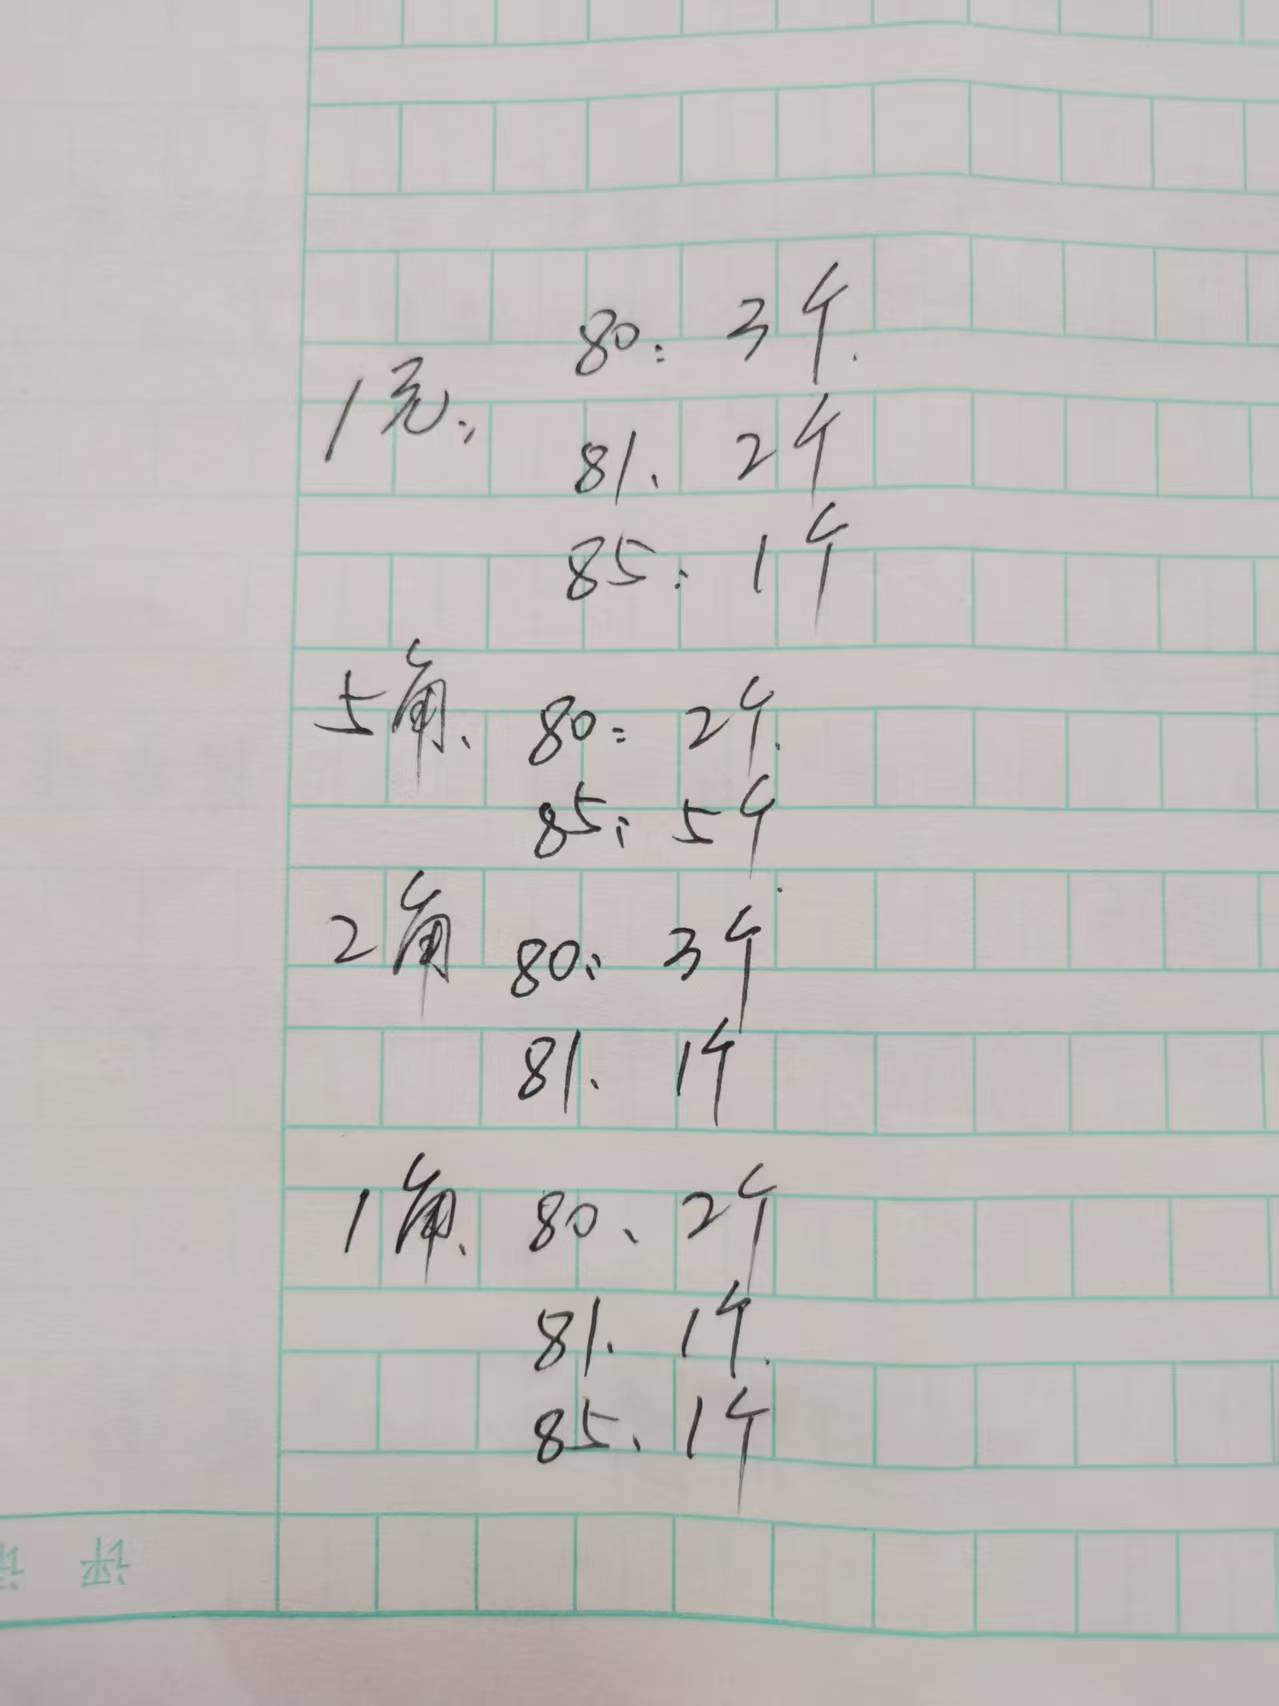 80: 3个.
1元:
81. 2个
85: 1个
5角、 80: 2个.
85: 5个
2角 80: 3个
81. 1个
1角、 80、 2个
81. 1个.
85、 1个
评